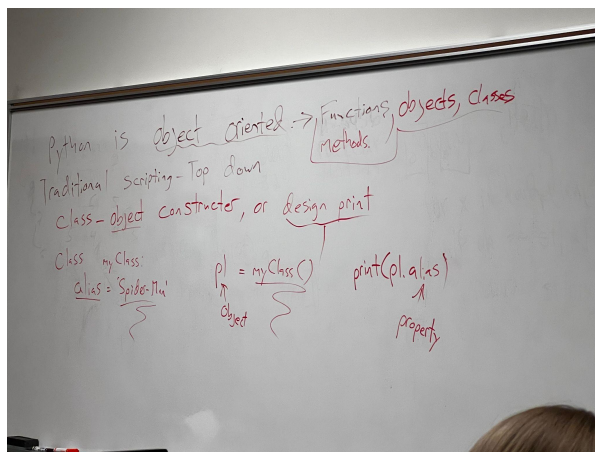 Python is object oriented → Functions, objects, classes
methods.
Traditional Scripting-Top down
Class-object constructer, or design print
Class myClass:
alias = 'Spider-Man'
p1 = myClass()
object
print(p1.alias)
property